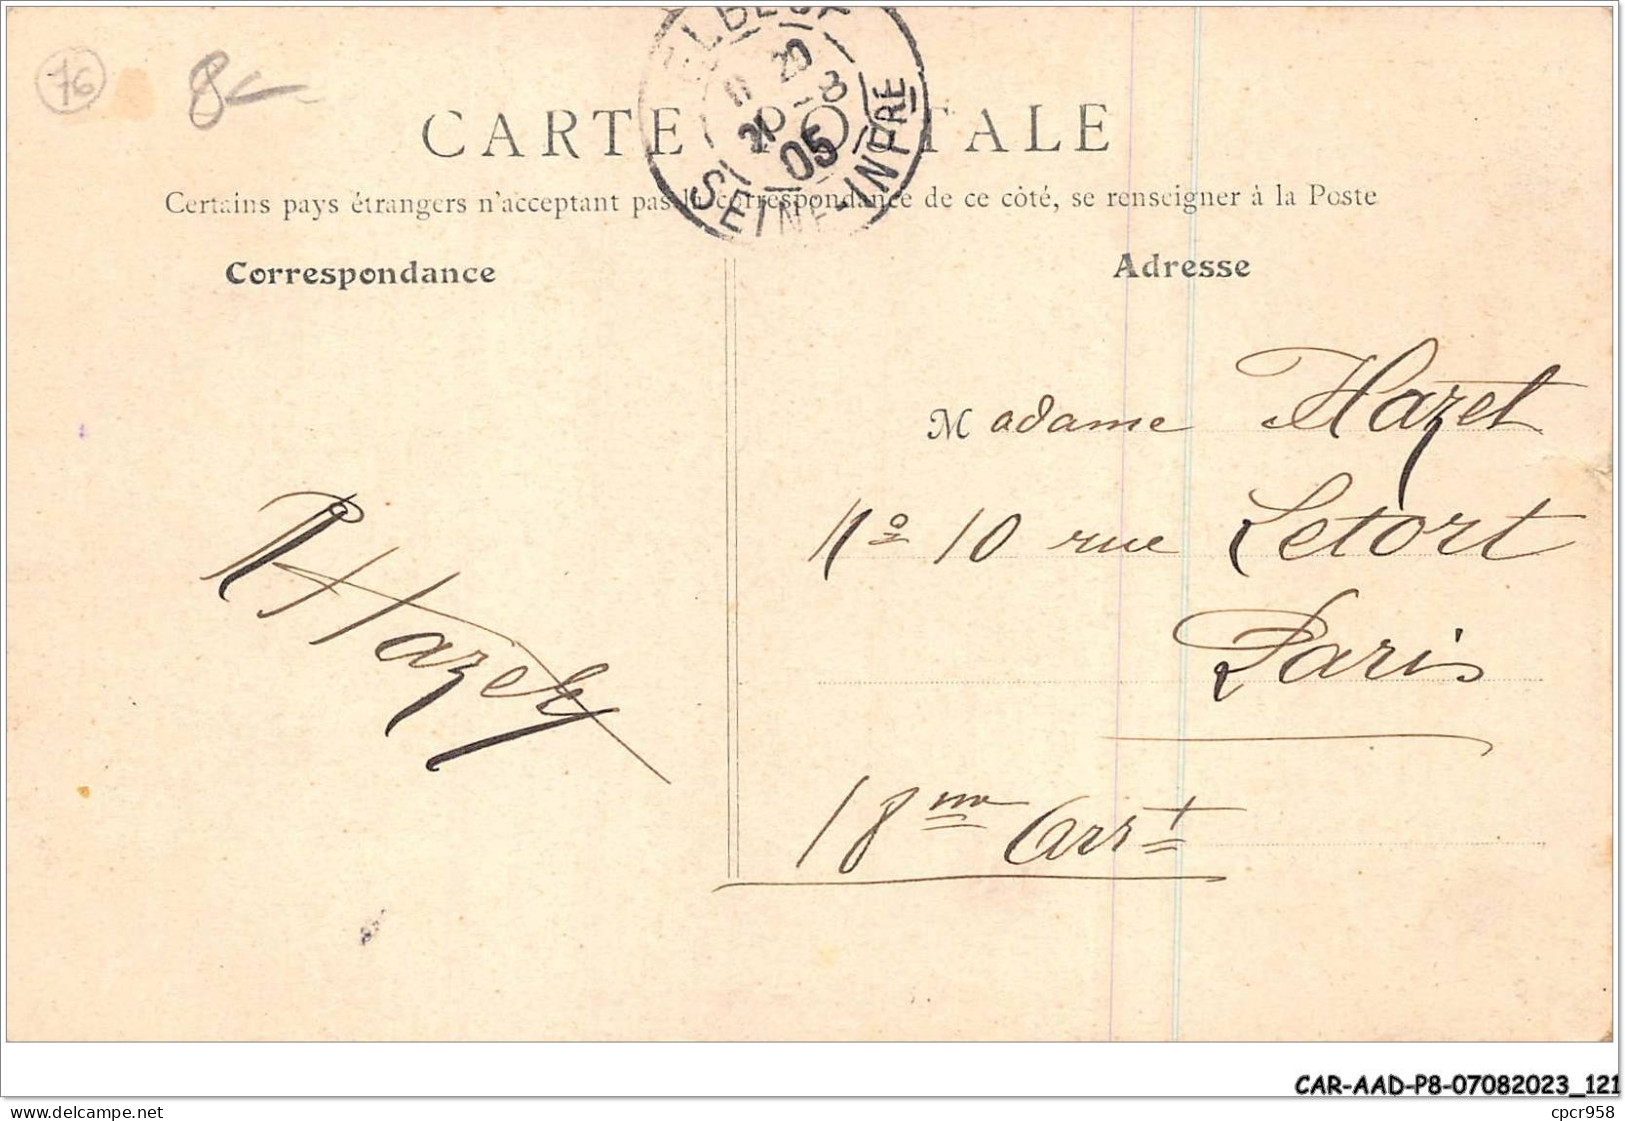 76
8
ELBEUF
11 20
21 -8
05
SEINE-INFRE
CARTE POSTALE
Certains pays étrangers n'acceptant pas la correspondance de ce côté, se renseigner à la Poste
Correspondance
Adresse
Madame Hazet
No 10 rue Letort
Paris
18me Arrt
Hazet
CAR-AAD-P8-07082023_121
www.delcampe.net
cpcr958